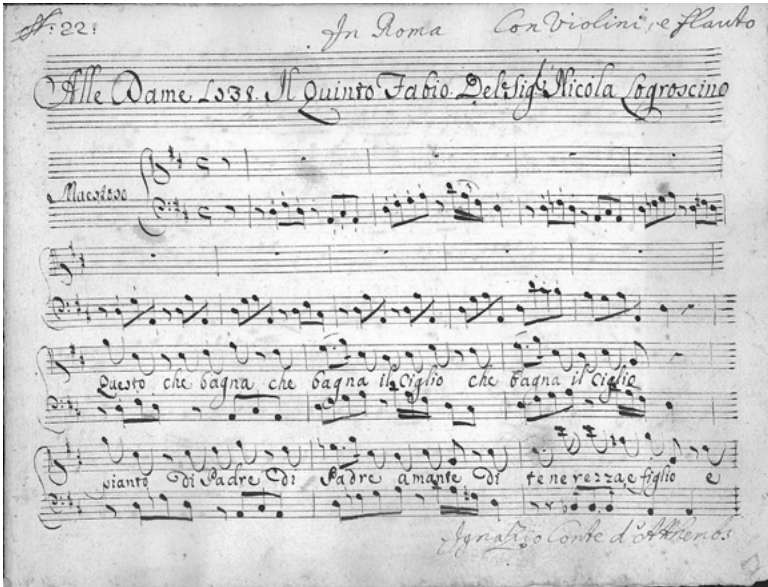 N.º 22: In Roma Con Violini, e Flauto
Alle Dame 1738. Il Quinto Fabio. Del Sig.r Nicola Logroscino
Maestoso
Questo che bagna che bagna il ciglio che bagna il ciglio
pianto di Padre di Padre amante di tenerezza, e figlio e
Ignazio Conte d'Atthembs